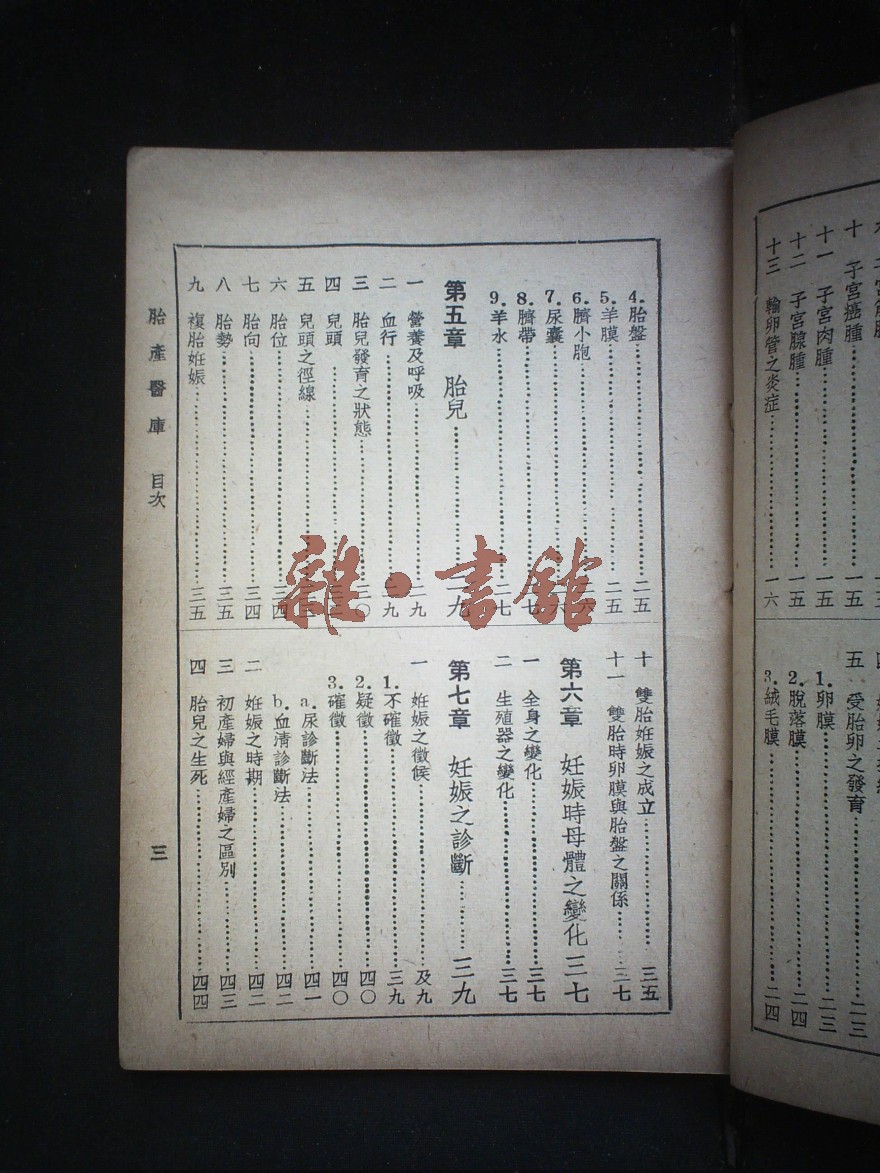 十 子宮癌腫……一五
十一 子宮肉腫……一五
十二 子宮腺腫……一五
十三 輸卵管之炎症……一六
五 受胎卵之發育……二三
1.卵膜……二三
2.脫落膜……二四
3.絨毛膜……二四
4.胎盤……二五
5.羊膜……二五
6.臍小胞……六
7.尿囊……六
8.臍帶……七
9.羊水……二七
第五章 胎兒……二九
一 營養及呼吸……二九
二 血行……二九
三 胎兒發育之狀態……三〇
四 兒頭……
五 兒頭之徑線……
六 胎位……三四
七 胎向……三四
八 胎勢……三五
九 複胎妊娠……三五
十 雙胎妊娠之成立……三五
十一 雙胎時卵膜與胎盤之關係……三七
第六章 妊娠時母體之變化 三七
一 全身之變化……三七
二 生殖器之變化……三七
第七章 妊娠之診斷……三九
一 妊娠之徵候……及九
1.不確徵……三九
2.疑徵……四〇
3.確徵……四〇
a.尿診斷法……四一
b.血清診斷法……四二
二 妊娠之時期……四二
三 初產婦與經產婦之區別……四三
四 胎兒之生死……四四
胎產醫庫 目次 三
雜·書館